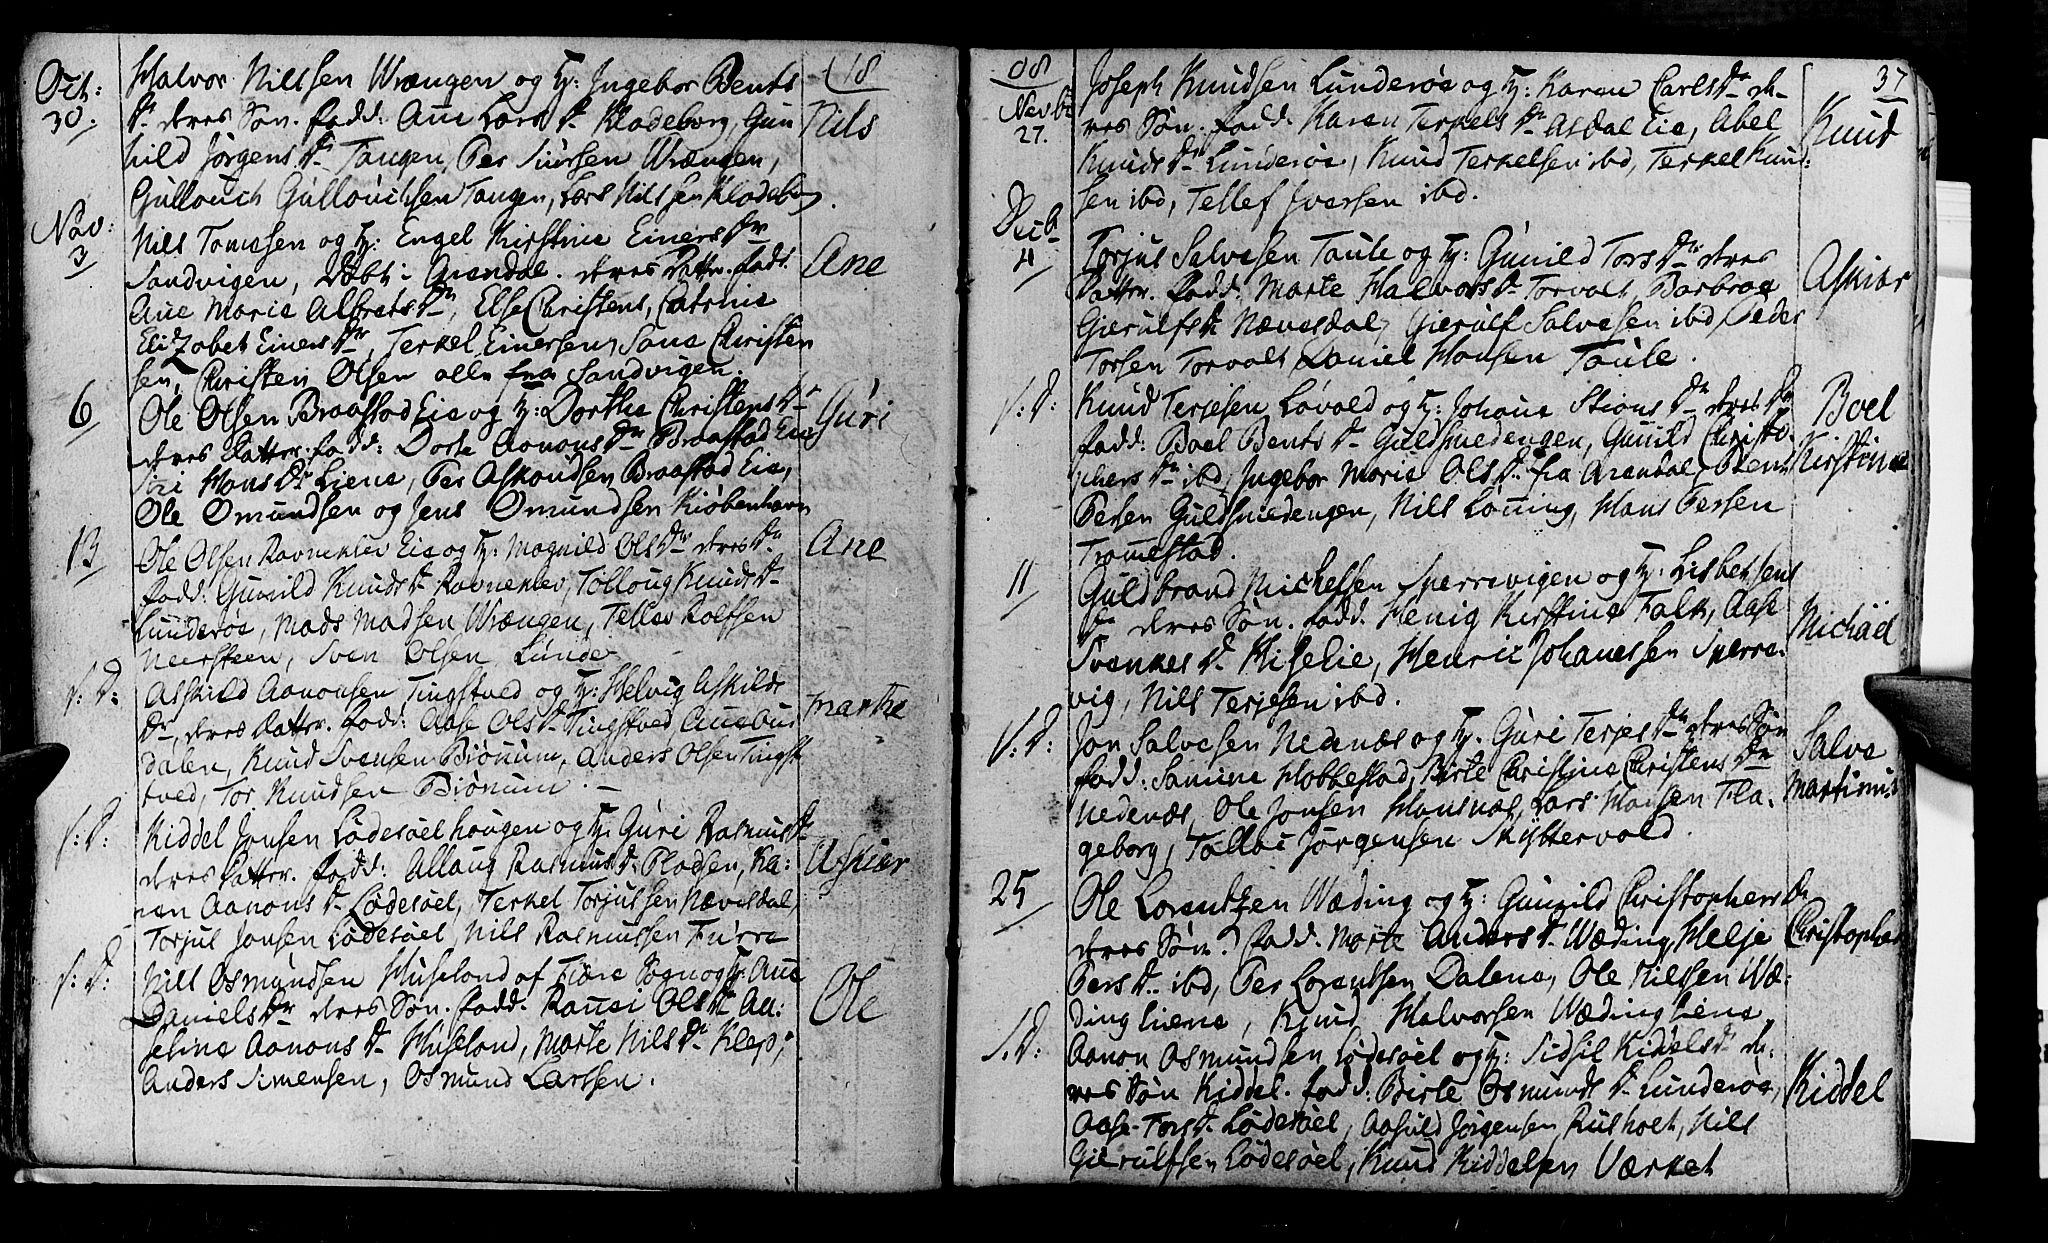 18
Oct: 30.
Halvor Nilssen Wrængen og H: Ingebor Bents
Dr deres Søn. fadd: Ane Lars Dr Klodeborg, Gun
hild Jørgens Dr Tangen, Per Siursen Wrængen,
Gullouch Gullouchsen Tangen, Lars Nilssen Klodeborg.
Nils
Nov: 3
Nils Tomesen og H: Engel Kirstine Einers Dr
Sandvigen, døbt i Arendal. deres Datter. fadd.
Ane Marie Albrets Dr, Else Christens, Catrine
Elizabet Einers Dr, Terkel Einersen, Christen
sen, Christen Olsen alle fra Sandvigen.
Ane
6
Ole Olsen Braastad Eie og H: Dorthe Christens Dr
deres Datter. fadd: Dorte Aanons Dr Braastad Eie
Siri Hans Dr Liene, Per Askoudsen Braastad Eie,
Ole Omundsen og Jens Omundsen Kiøbenhavn
Guri
13
Ole Olsen Ravneklev Eie og H: Magnild Ols Dr deres Dr
fadd: Gunild Knuds Dr Ravneklev, Tolloug Knuds Dr
Lunderøe, Mads Madsen Wrængen, Tellev Rolfsen
Neersteen, Sven Olsen Lunde
Ane
s: D:
Askild Aanonsen Tingstved og H: Helvig Askilds
Dr, deres Datter. fadd: Aase Ols Dr Tingstved, Ane
dalen, Knud Svensen Biønum, Anders Olsen Tingst
tved, Tor Knudsen Biønum. –
Marthe
s: D:
Kiddel Jonsen Lødesøelhougen og H: Guri Rasmus Dr
deres Datter. fadd: Allaug Rasmus Dr Pladsen, Ka:
ren Aanons Dr Lødesøel, Terkel Torjussen Nævesdal,
Torjus Jonsen Lødesøel, Nils Rasmussen Furre
Askier
s: D:
Nill Osmundsen Huseland af Fiære Sogn og H: Ane
Daniels Dr deres Søn. fadd. Ranei Ols Dr Aa:
seline Aanons Dr Huseland, Marte Nils Dr Klep,
Anders Simensen, Osmund Larssen.
Ole
88
37
Novbr 27.
Joseph Knudsen Lunderøe og H: Karen Carls Dr de-
res Søn. fadd. Karen Terkels Dr Asdal Eie, Abel
Knuds Dr Lunderøe, Knud Terkelsen ibd, Terkel Knud:
sen ibd, Tellef Iversen ibd.
Knud
Decb 4
Torjus Salvesen Taule og H: Gunild Tors Dr deres
Datter. fadd. Marte Halvors Dr Torvolt, Barbroe
Gierulfs Dr Nævesdal, Gierulf Salvesen ibd, Peder
Torsen Torvolt, Daniel Hansen Taule.
Askier
s: D:
Knud Terjesen Løvold og H: Johane Stians Dr deres Dr
fadd: Boel Bents Dr Guldsmedengen, Gunild Christo-
phers Dr ibd, Ingebor Marie Ols Dr fra Arendal, Bent
Persen Guldsmedengen, Nils Lønning, Hans Persen
Trommestad.
Boel
Kirstine
11
Guldbrand Michelsen Sperrevigen og H: Lisbet Jens
Dr deres Søn. fadd. Henig Kirstine Falk, Aase
Svenkes Dr Kiselie, Henric Johanessen Sperre-
vig, Nils Terjesen ibd.
Michael
s: D:
Jon Salvesen Nedenæs og H. Guri Terjes Dr deres Søn
fadd: Samine Hobbestad, Birte Christine Christens Dr
Nedenæs, Ole Jonsen Hansnæs, Lars Hansen Fla-
geborg, Tollev Jørgensen Skyttervold.
Salve
Martinus
25
Ole Lorentzen Wæding og H: Gunild Christophers Dr
deres Søn. fadd. Marte Anders Dr Wæding, Helje
Pers Dr ibd, Per Lorentsen Dalene, Ole Nilssen Wæ-
ding Liene, Knud Halvorsen Wæding Liene.
Christopher
s: D:
Aanon Osmundsen Lødesøel og H: Sidsil Kiddels Dr de-
res Søn Kiddel. fadd: Birte Osmunds Dr Lunderøe,
Aase Tors Dr Lødesøel, Aasuld Jørgensen Rusholt, Nils
Gierulfsen Lødesøel, Knud Kiddelsen Værket
Kiddel